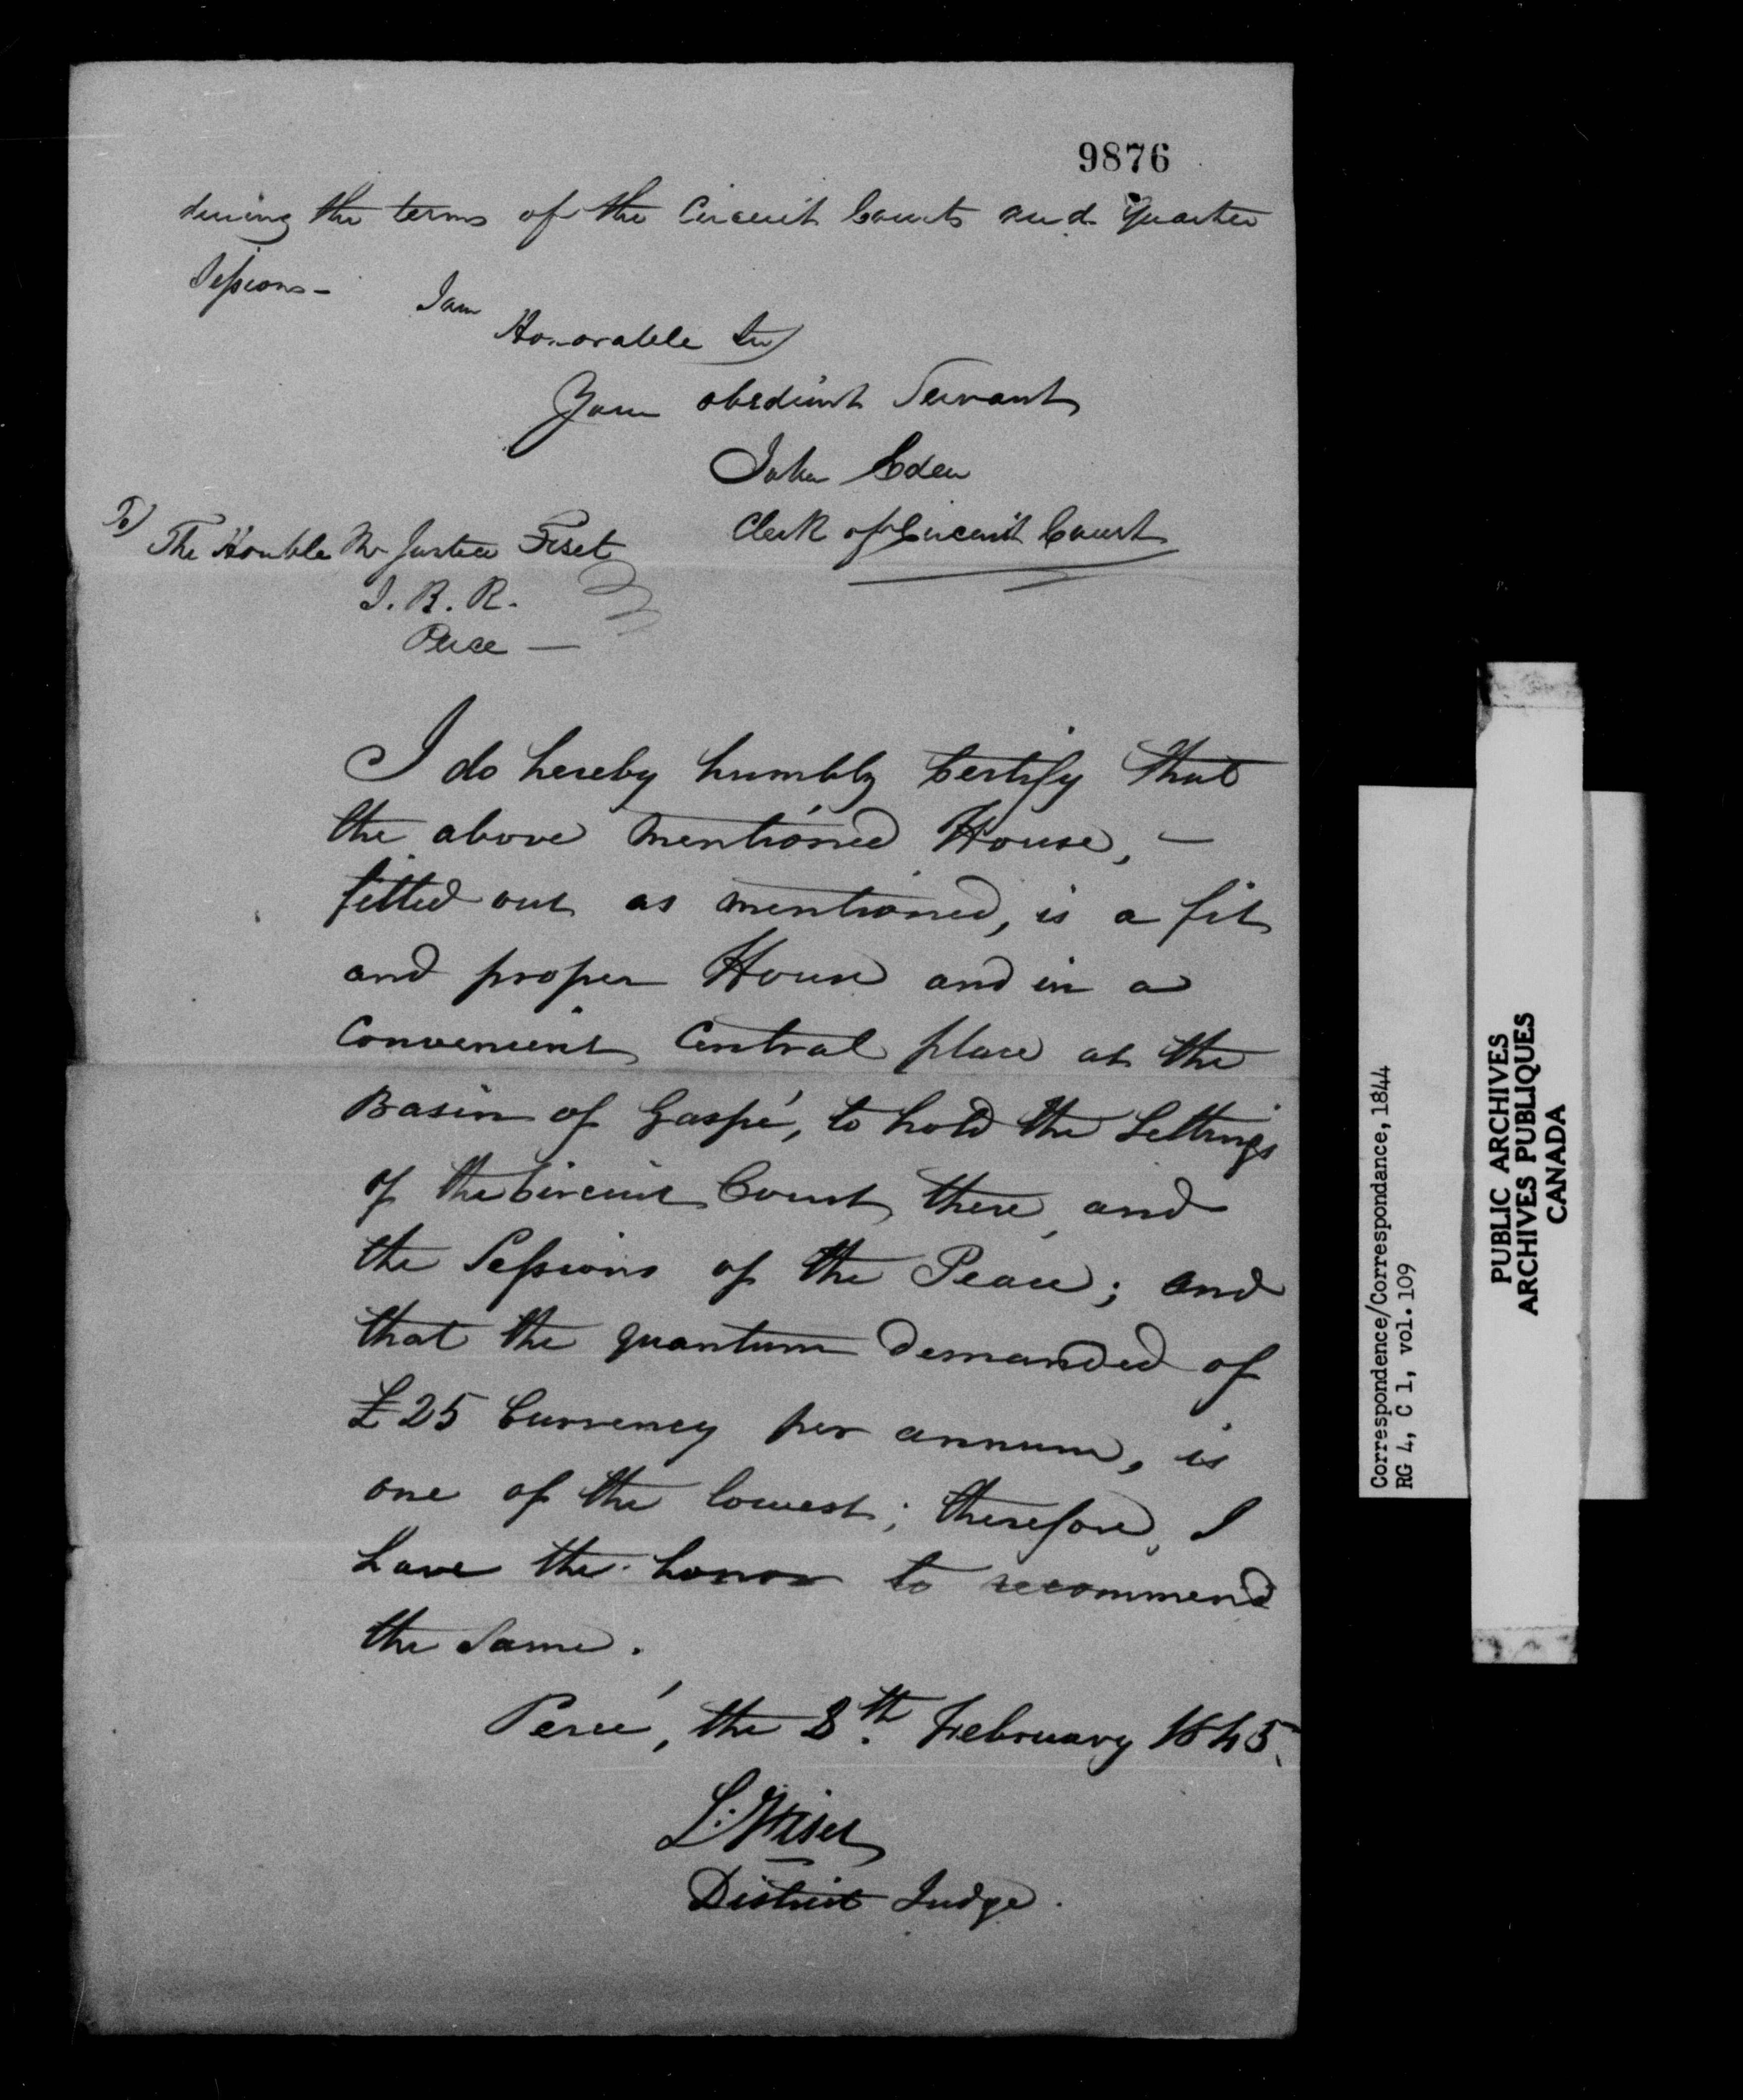 9876
during the terms of the Circuit Courts and Quarter
Sessions -
I am
Honorable Sir
Your obedient Servant
John Eden
Clerk of Circuit Court
To
The Honble Mr Justice Fiset
J. B. R.
Perce —
I do hereby humbly Certify that
the above mentioned House, —
fitted out as mentioned, is a fit
and proper House and in a
Convenient Central place at the
Basin of Gaspé, to hold the Sittings
of the Circuit Court there, and
the Sessions of the Peace; and
that the quantum demanded of
£25 Currency per annum, is
one of the lowest; therefore, I
have the honor to recommend
the Same.
Percé, the 8th February 1845.
L: Fiset
District Judge.
Correspondence/Correspondance, 1844
RG 4, C 1, vol. 109
PUBLIC ARCHIVES
ARCHIVES PUBLIQUES
CANADA